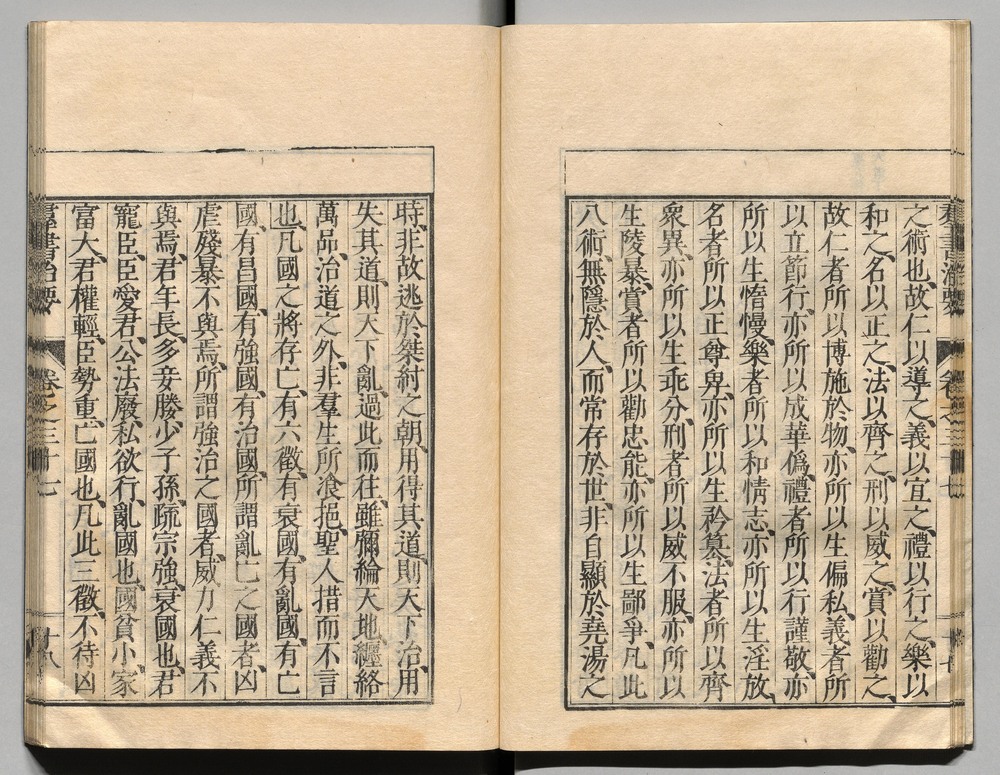 之術也、故仁以導之、義以宜之、禮以行之、樂以
和之、名以正之、法以齊之、刑以威之、賞以勸之、
故仁者所以博施於物、亦所以生偏私、義者所
以立節行、亦所以成華僞、禮者所以行謹敬、亦
所以生惰慢、樂者所以和情志、亦所以生淫放、
名者所以正尊卑、亦所以生矜篡、法者所以齊
衆異、亦所以生乖分、刑者所以威不服、亦所以
生陵暴、賞者所以勸忠能、亦所以生鄙爭、凡此
八術、無隱於人、而常存於世、非自顯於堯湯之
時、非故逃於桀紂之朝、用得其道、則天下治、用
失其道、則天下亂、過此而往、雖彌綸天地、纏絡
萬品、治道之外、非羣生所飡挹、聖人措而不言
也、凡國之將存亡、有六徵、有衰國、有亂國、有亡
國、有昌國、有強國、有治國、所謂亂亡之國者、凶
虐殘暴不與焉、所謂強治之國者、威力仁義不
與焉、君年長、多妾媵、少子孫、疏宗強、衰國也、君
寵臣、臣愛君、公法廢、私欲行、亂國也、國貧小、家
富大、君權輕、臣勢重、亡國也、凡此三徵、不待凶
羣書治要 卷之三十七 十八